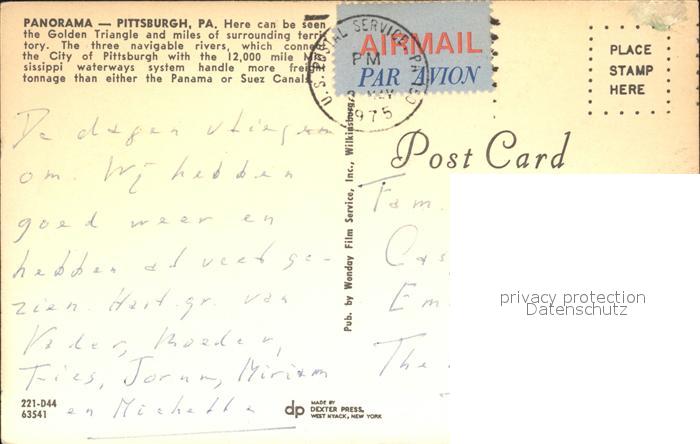 PANORAMA — PITTSBURGH, PA. Here can be seen
the Golden Triangle and miles of surrounding terri
tory. The three navigable rivers, which connec
the City of Pittsburgh with the 12,000 mile M
sissippi waterways system handle more freig
tonnage than either the Panama or Suez Canals
De dagen vliegen
om. Wij hebben
goed weer en
hebben al veel ge-
zien. Hart. gr. van
Vader, Moeder,
Ties, Jorn, Miriam
en Michella
221-D44
63541
dp
MADE BY
DEXTER PRESS,
WEST NYACK, NEW YORK
Pub. by Wonday Film Service, Inc., Wilkinsburg,
U.S. POSTAL SERVICE PA
PM
MAY
1975
AIRMAIL
PAR AVION
PLACE
STAMP
HERE
Post Card
Fam.
Cas
Em
The
privacy protection
Datenschutz